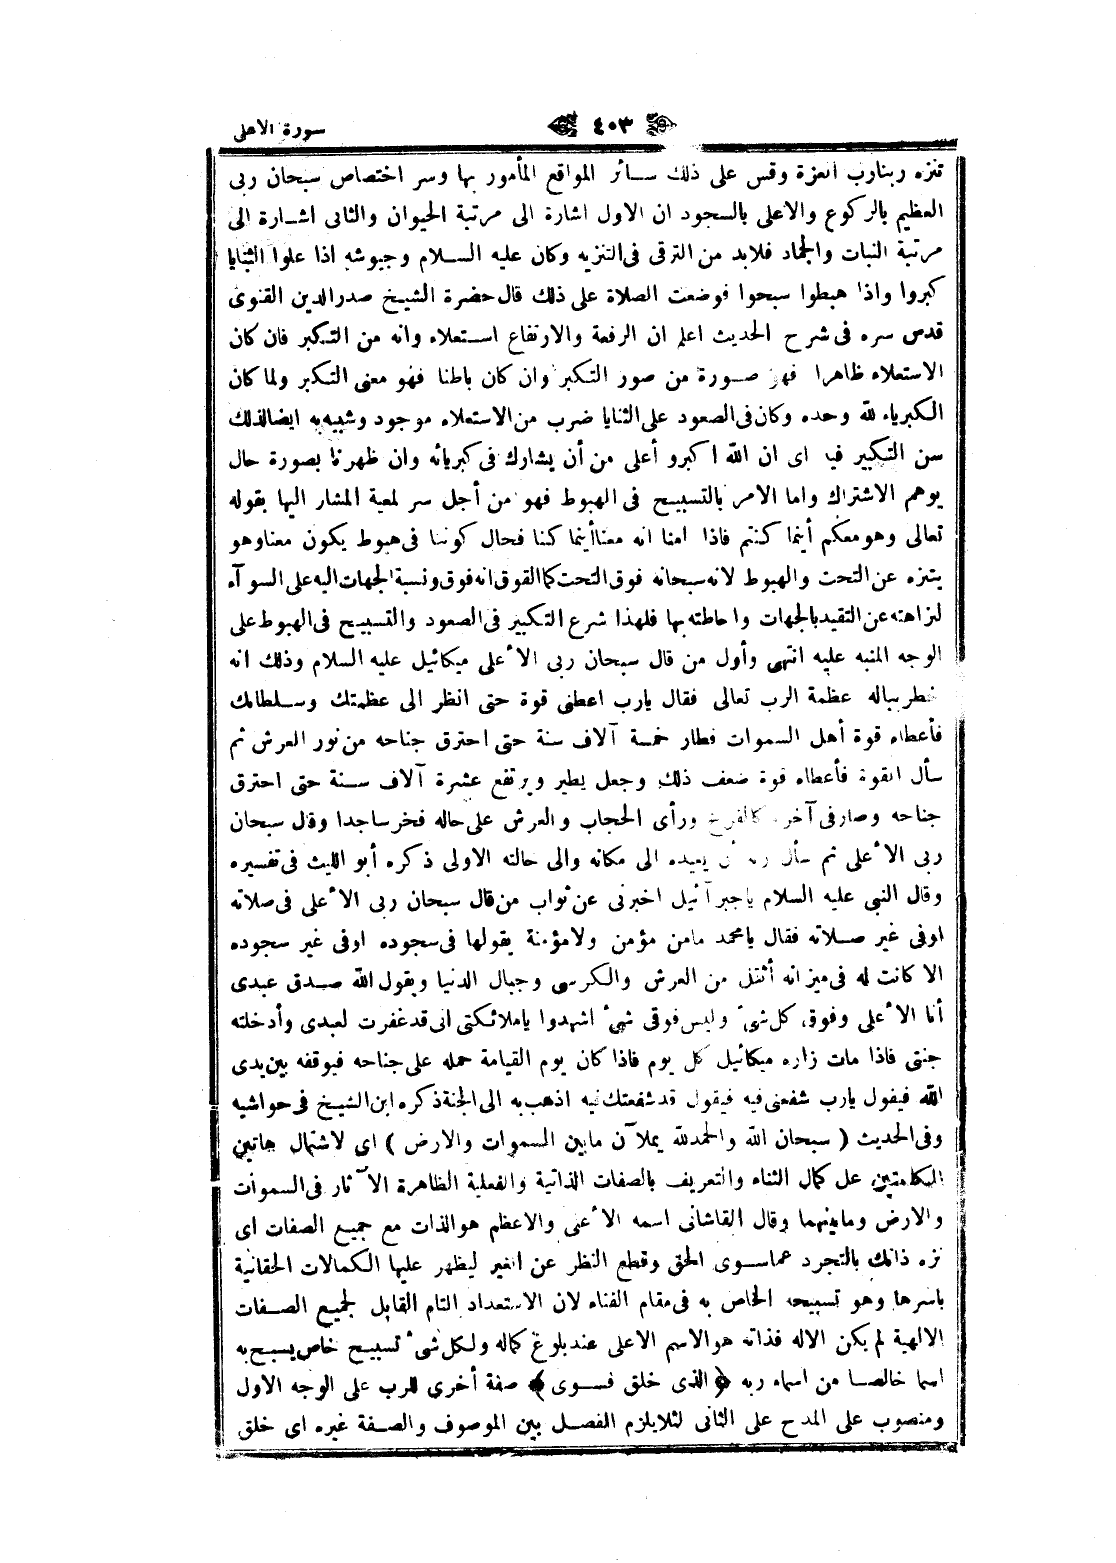 سورة الاعلى ٤٠٣
تنزه ربنارب العزة وقس على ذلك سائر المواقع المأمور بها وسر اختصاص سبحان ربى
العظيم بالركوع والاعلى بالسجود ان الاول اشارة الى مرتبة الحيوان والثانى اشارة الى
مرتبة النبات والجماد فلابد من الترقى فى التنزيه وكان عليه السلام وجيوشه اذا علوا الثنايا
كبروا واذا هبطوا سبحوا فوضعت الصلاة على ذلك قال حضرة الشيخ صدرالدين القنوى
قدس سره فى شرح الحديث اعلم ان الرفعة والارتفاع استعلاء وانه من التكبر فان كان
الاستعلاء ظاهرا فهو صورة من صور التكبر وان كان باطنا فهو معنى التكبر ولما كان
الكبرياء لله وحده وكان فى الصعود على الثنايا ضرب من الاستعلاء موجود وشبيه به ايضا لذلك
سن التكبير فيه اى ان الله اكبرو أعلى من أن يشارك فى كبريائه وان ظهرنا بصورة حال
يوهم الاشتراك واما الامر بالتسبيح فى الهبوط فهو من أجل سر لمعية المشار اليها بقوله
تعالى وهومعكم أينما كنتم فاذا امنا انه معنا أينما كنا فحال كوننا فى هبوط يكون معناوهو
يتنزه عن التحت والهبوط لانه سبحانه فوق التحت كما القوق انه فوق ونسبة الجهات اليه على السوآء
لنزاهته عن التقيد بالجهات واحاطته بها فلهذا شرع التكبير فى الصعود والتسبيح فى الهبوط على
الوجه المنبه عليه انتهى وأول من قال سبحان ربى الأعلى ميكائيل عليه السلام وذلك انه
خطر بباله عظمة الرب تعالى فقال يارب اعطنى قوة حتى انظر الى عظمتك وسلطانك
فأعطاه قوة أهل السموات فطار خمسة آلاف سنة حتى احترق جناحه من نور العرش ثم
سأل القوة فأعطاه قوة ضعف ذلك وجعل يطير ويرتفع عشرة آلاف سنة حتى احترق
جناحه وصار فى آخره كالفرخ ورأى الحجاب والعرش على حاله فخر ساجدا وقال سبحان
ربى الأعلى ثم سأل ربه أن يعيده الى مكانه والى حالته الاولى ذكره أبو الليث فى تفسيره
وقال النبى عليه السلام ياجبرآئيل اخبرنى عن ثواب من قال سبحان ربى الأعلى فى صلاته
اوفى غير صلاته فقال يامحمد مامن مؤمن ولامؤمنة يقولها فى سجوده اوفى غير سجوده
الا كانت له فى ميزانه أثقل من العرش والكرسى وجبال الدنيا ويقول الله صدق عبدى
أنا الأعلى وفوق كل شئ وليس فوقى شئ اشهدوا ياملائكتى انى قد غفرت لعبدى وأدخلته
جنتى فاذا مات زاره ميكائيل كل يوم فاذا كان يوم القيامة حمله على جناحه فيوقفه بين يدى
الله فيقول يارب شفعنى فيه فيقول قد شفعتك فيه اذهب به الى الجنة ذكره ابن الشيخ فى حواشيه
وفى الحديث ( سبحان الله والحمدلله يملآن مابين السموات والارض ) اى لاشتمال هاتين
الكلمتين على كمال الثناء والتعريف بالصفات الذاتية والفعلية الظاهرة الآثار فى السموات
والارض ومابينهما وقال القاشانى اسمه الأعلى والاعظم هوالذات مع جميع الصفات اى
نزه ذاتك بالتجرد عماسوى الحق وقطع النظر عن الغير ليظهر عليها الكمالات الحقانية
باسرها وهو تسبيحه الخاص به فى مقام الفناء لان الاستعداد التام القابل لجميع الصفات
الالهية لم يكن الاله فذاته هوالاسم الاعلى عند بلوغ كماله ولكل شئ تسبيح خاص يسبح به
اسما خالصا من اسماء ربه ﴿ الذى خلق فسوى ﴾ صفة أخرى للرب على الوجه الاول
ومنصوب على المدح على الثانى لئلايلزم الفصل بين الموصوف والصفة غيره اى خلق